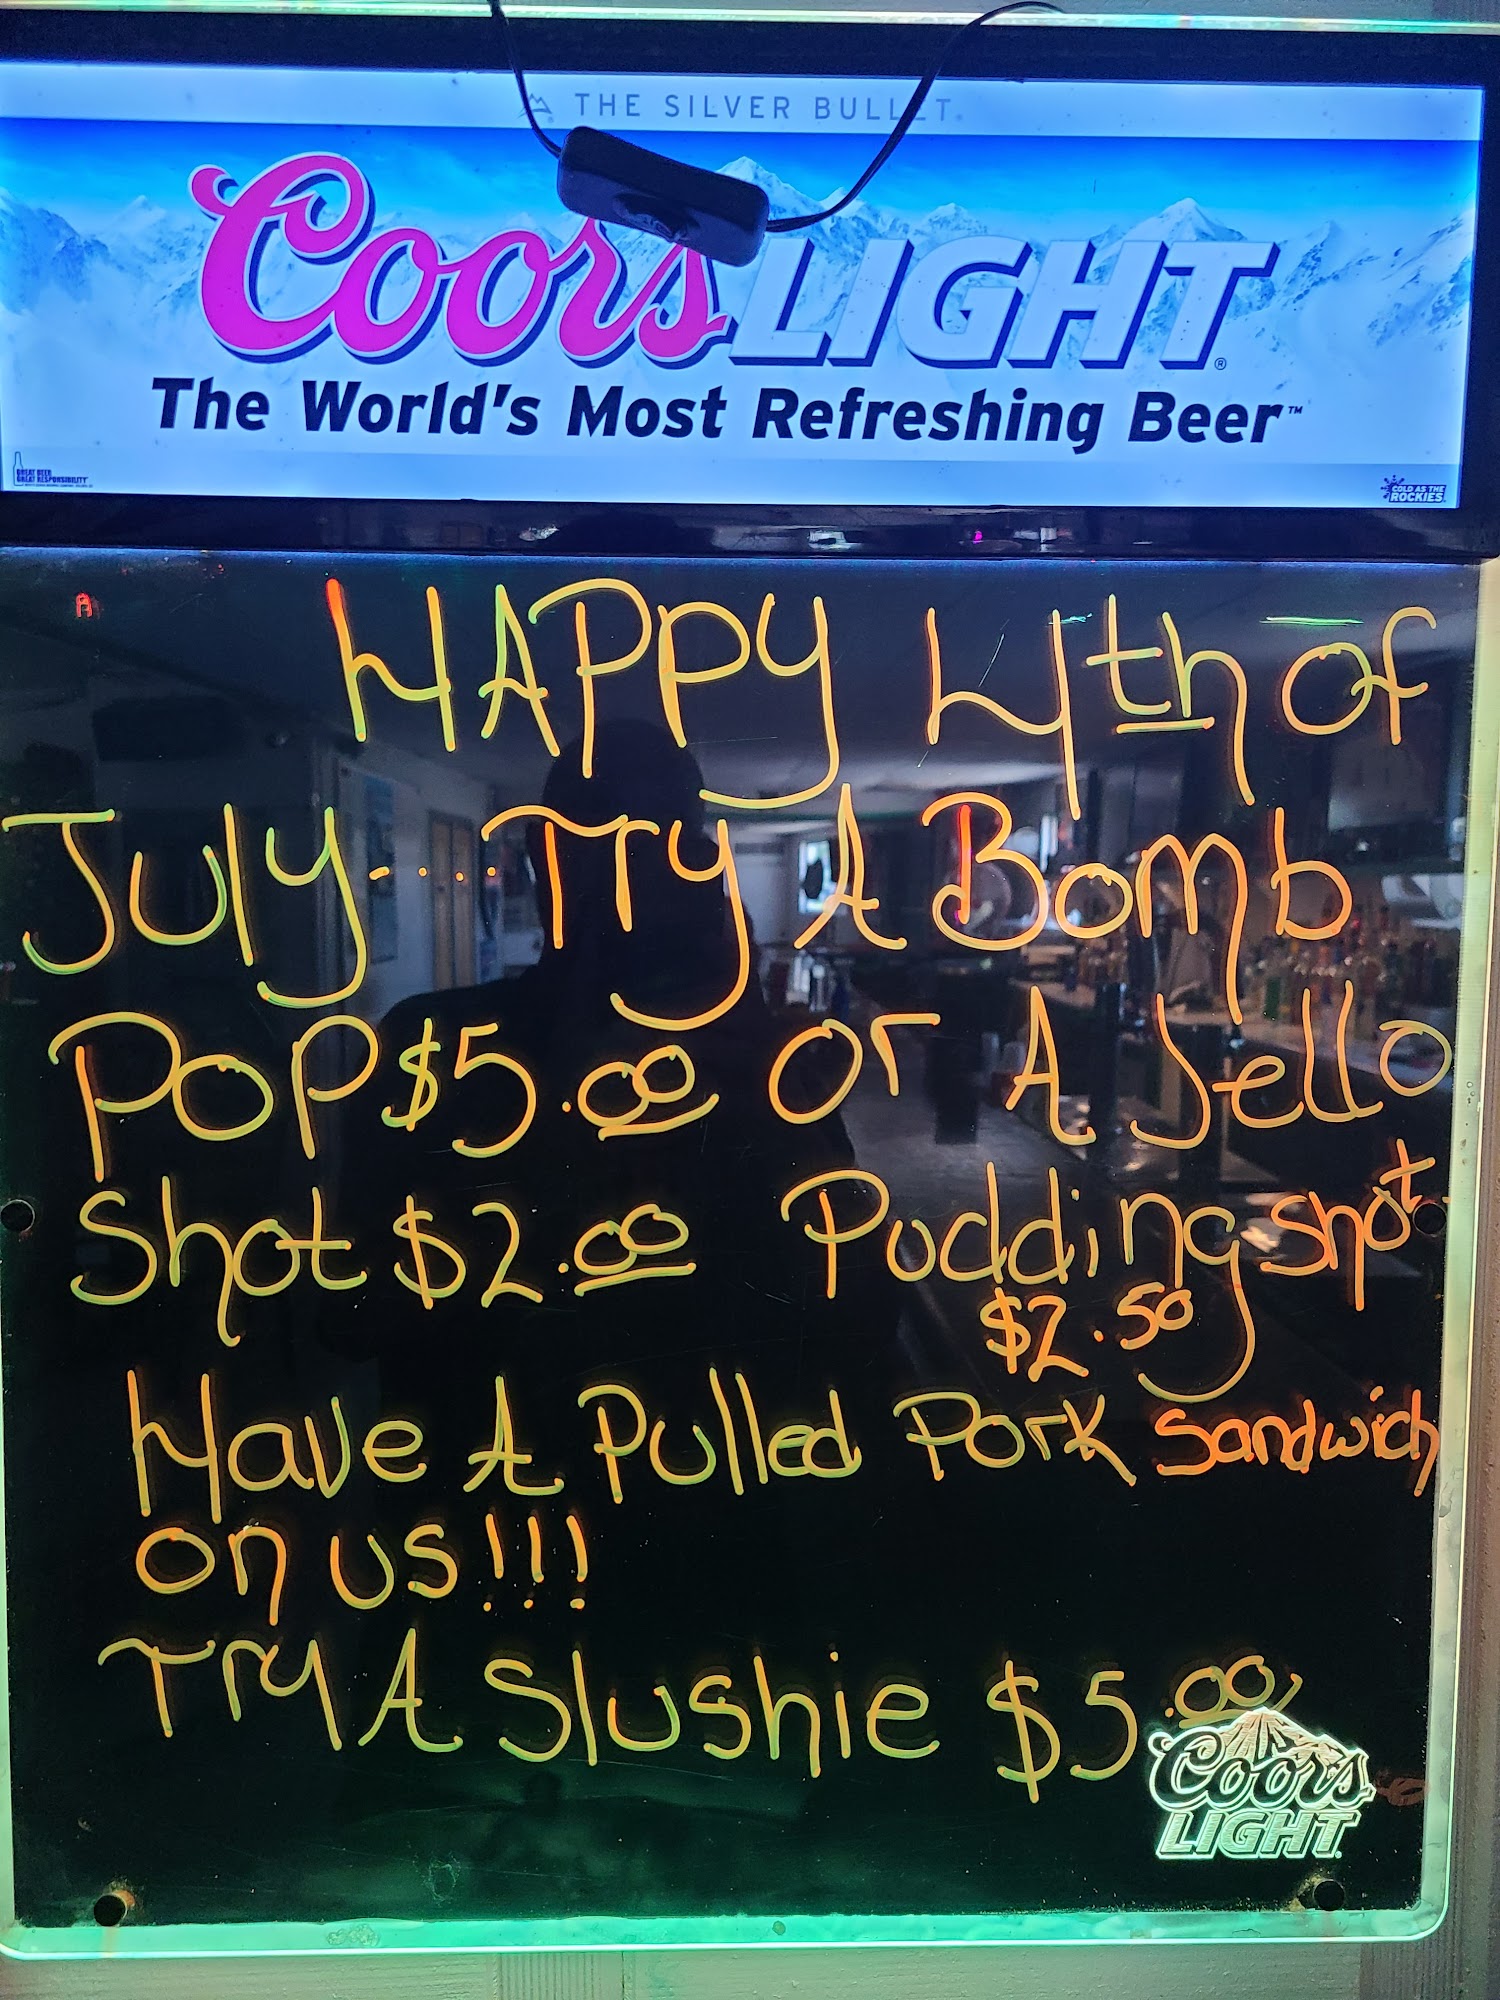 THE SILVER BULLET
Coors LIGHT
The World's Most Refreshing Beer™
GREAT BEER
GREAT RESPONSIBILITY
COLD AS THE
ROCKIES
HAPPY 4th of
July....Try A Bomb
POP $5.00 or A Jello
Shot $2.00 Pudding shot
$2.50
Have A Pulled Pork Sandwich
on us!!!
Try A Slushie $5.00
Coors
LIGHT